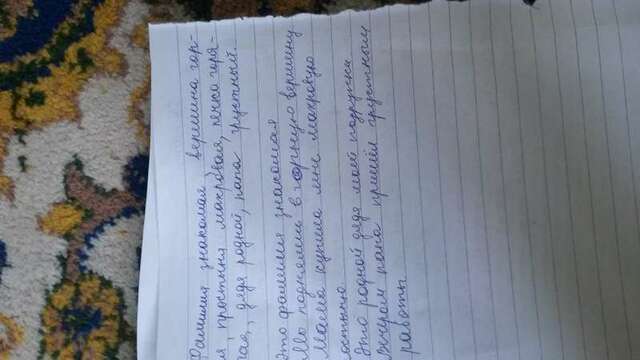 Фамилия знакомая, вершина гор-
я, простыня махровая, печка горя-
чая, дядя родной, папа грустный.
Это фамилия знакомая
Мы поднялись в горную вершину
Мама купила мне махровую
остыню
Это родной дядя моей подружки
Вечером папа пришёл грустным
работы